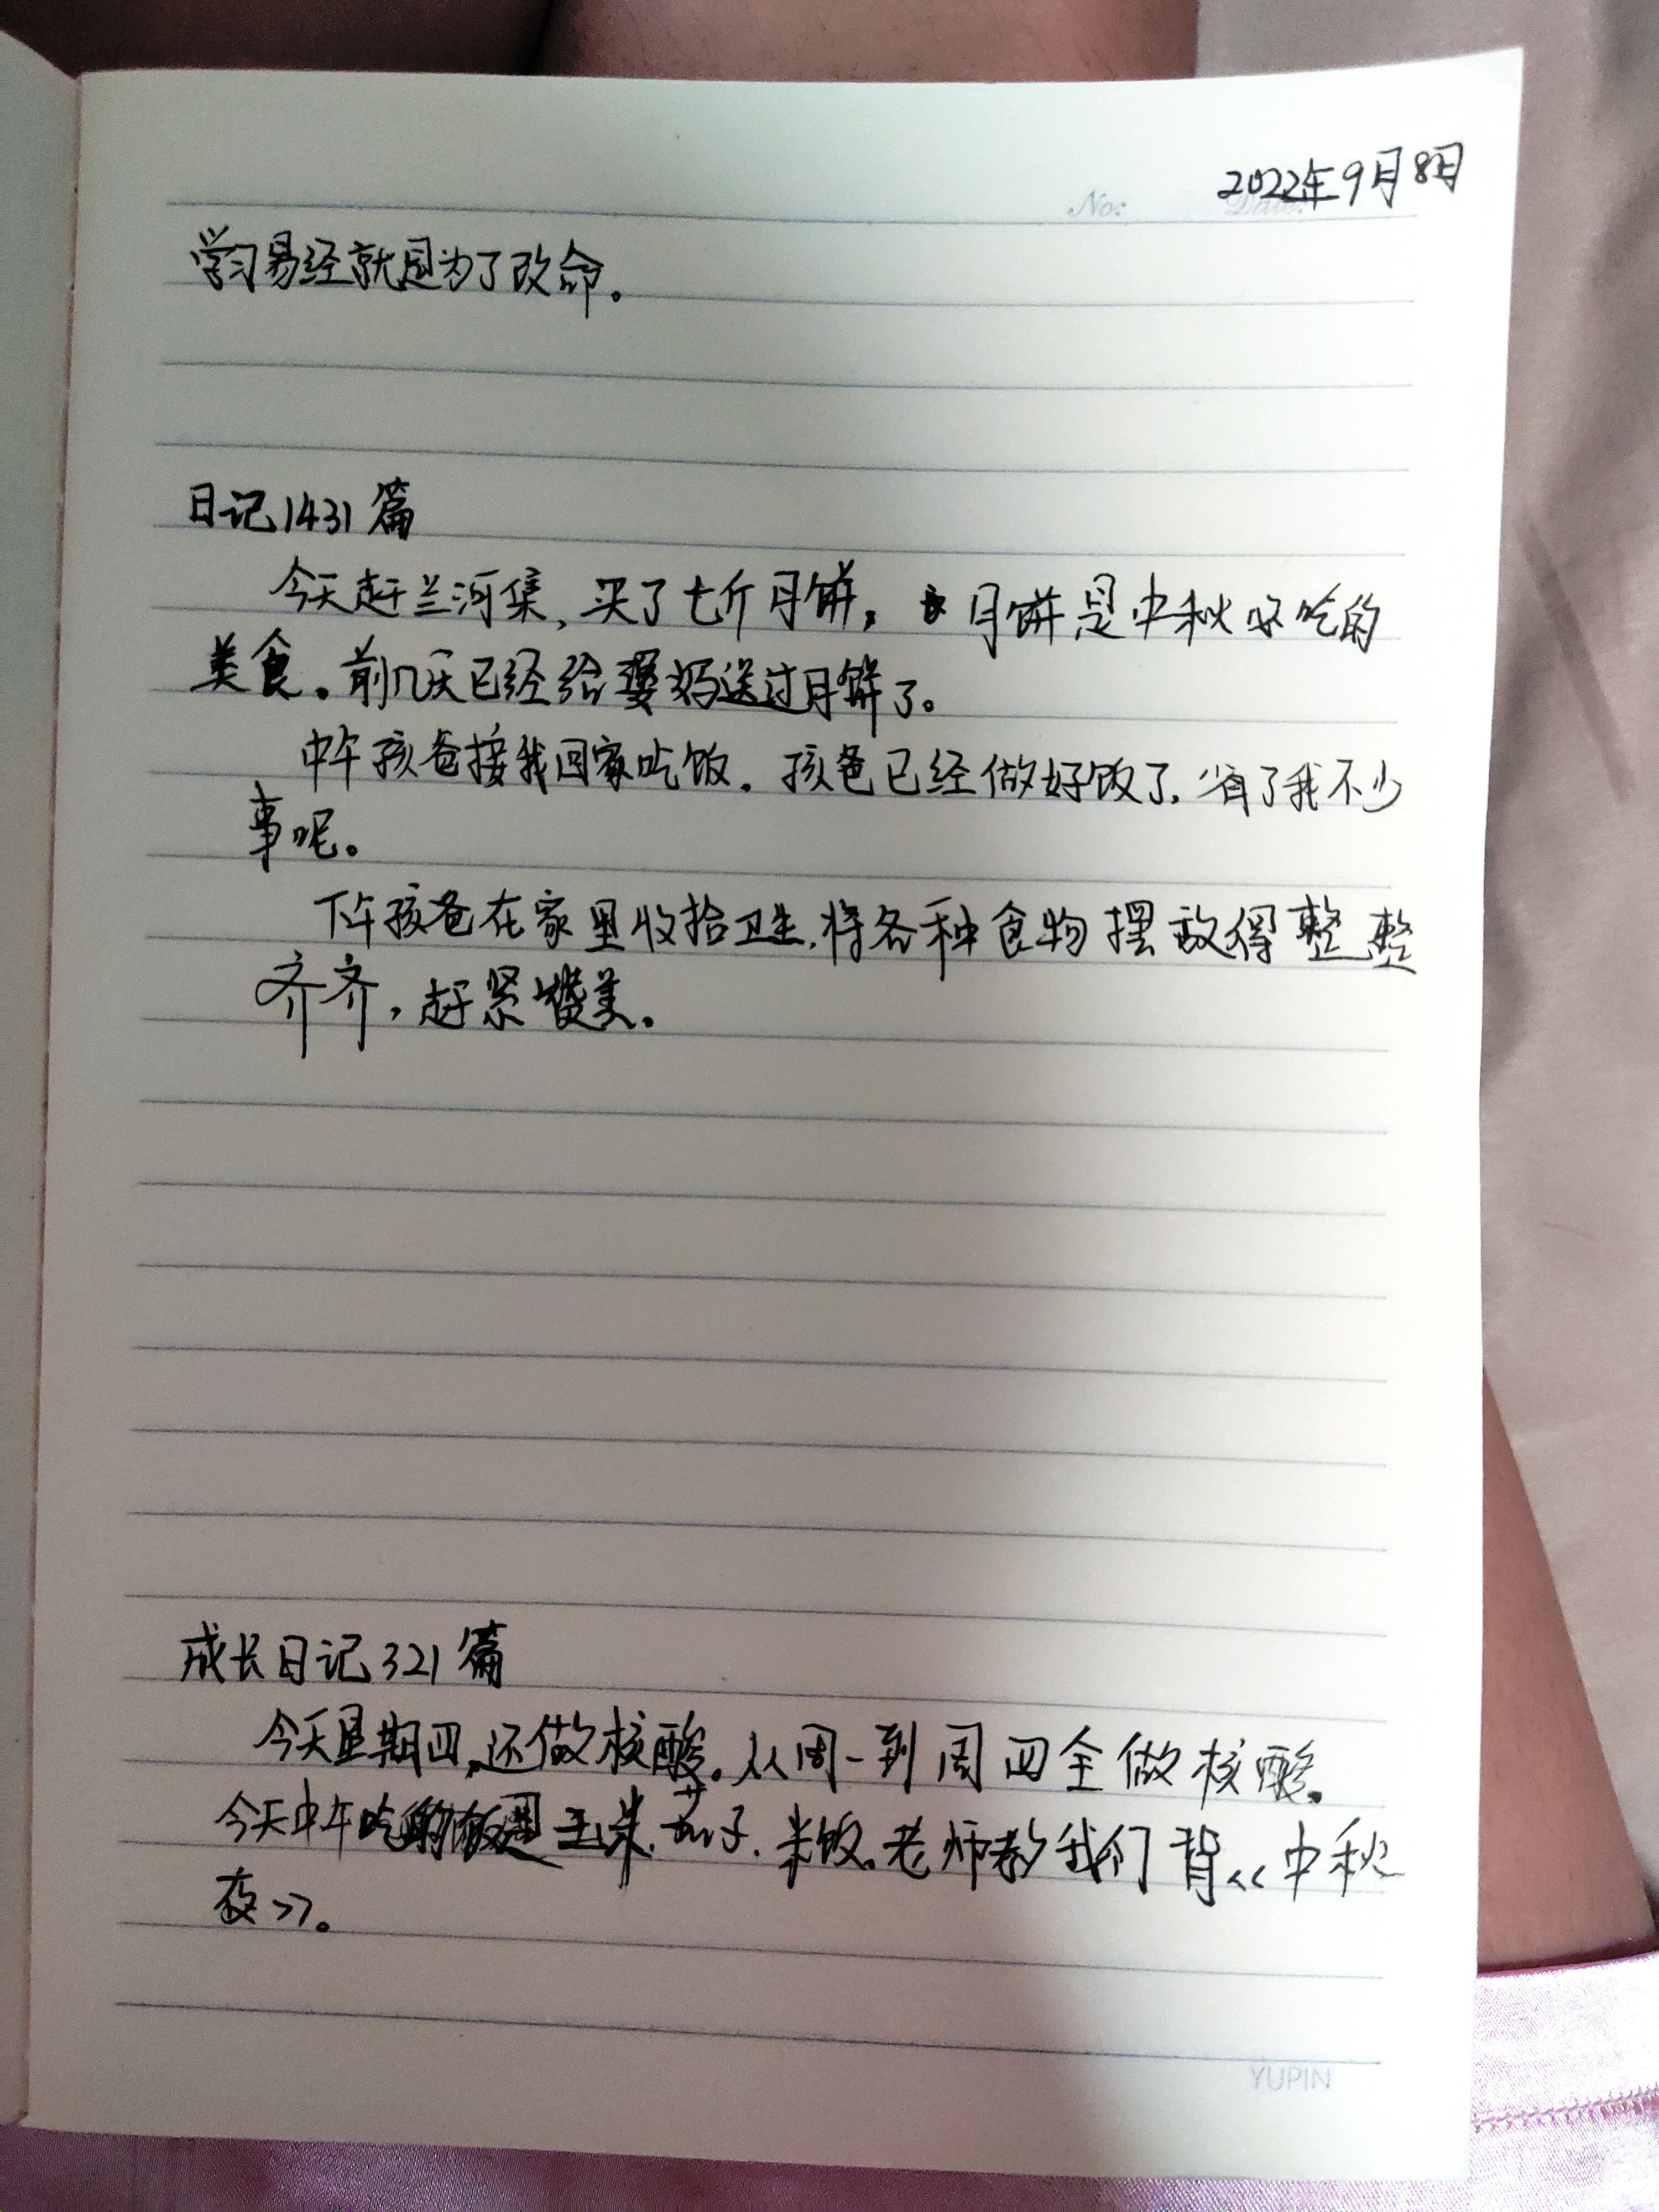 2022年9月8日
No: Date:
学习易经就是为了改命。
日记1431篇
今天赶兰河集,买了七斤月饼,月饼是中秋必吃的
美食。前几天已经给婆妈送过月饼了。
中午孩爸接我回家吃饭。孩爸已经做好饭了,省了我不少
事呢。
下午孩爸在家里收拾卫生,将各种食物摆放得整整
齐齐,赶紧赞美。
成长日记321篇
今天星期四,还做核酸。从周一到周四全做核酸。
今天中午吃的饭是玉米.茄子.米饭。老师教我们背《中秋
夜》。
YUPIN